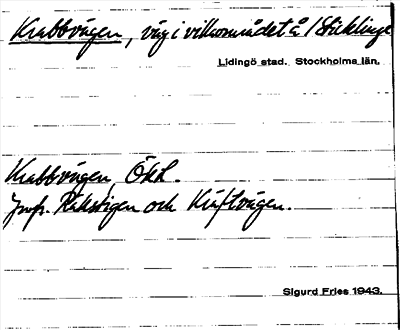 Krabbvägen, väg i villaområdet å /Sticklinge
Lidingö stad. Stockholms län.
Krabbvägen, Ökl.
Jmfr. Räkstigen och Kräftvägen.
Sigurd Fries 1943.